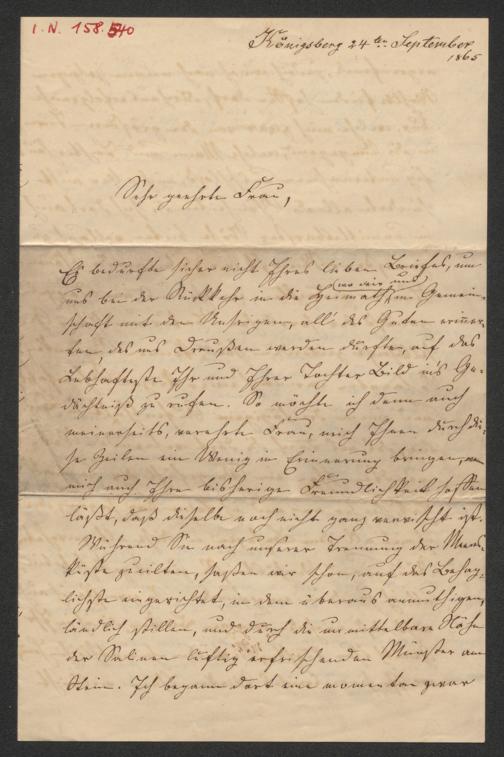 I. N. 158.540
Königsberg 24ten September
1865
Sehr geehrte Frau,
Es bedurfte sicher nicht Ihres lieben Briefes, um
wo wir uns
uns bei der Rückkehr in die Heimath, in Gemein-
schaft mit den Unsrigen, all' des Guten erinner-
ten des uns Draußen werden durften, auf das
Lebhafteste Ihr und Ihrer Tochter Bild in's Ge-
dächtniß zu rufen. So möchte ich denn auch
meinerseits, verehrte Frau, mich Ihnen durch die-
se Zeilen ein Wenig in Erinnerung bringen,
mich auch Ihre bisherige Freundlichkeit hoffen
läßt, daß dieselbe noch nicht ganz verwischt ist.
Während Sie nach unserer Trennung der Meeres-
küste zueilten, saßen wir schon, auf das Behag-
lichste eingerichtet, in dem überaus anmuthigen,
ländlich stillen, und durch die unmittelbare Nähe
der Salinen luftig erfrischenden Münster am
Stein. Ich begann dort eine momentan zwar